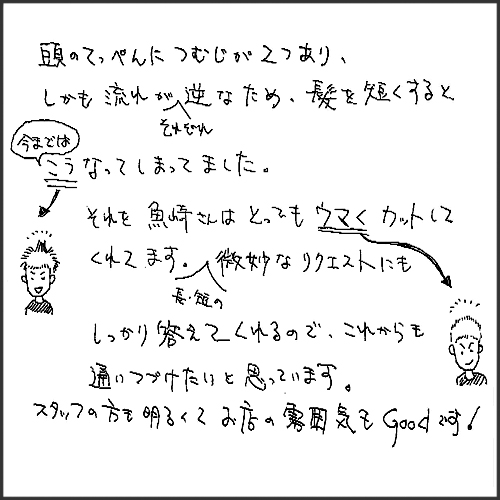 頭のてっぺんに つむじが2つあり、
しかも 流れが 逆なため、髪を短くすると
それぞれ
今までは
こうなってしまってました。
それを 魚崎さんは とっても ウマく カットして
くれてます。 微妙な リクエストにも
長・短の
しっかり 答えてくれるので、これからも
通いつづけたいと 思っています。
スタッフの方も 明るくて お店の 雰囲気も Goodです!